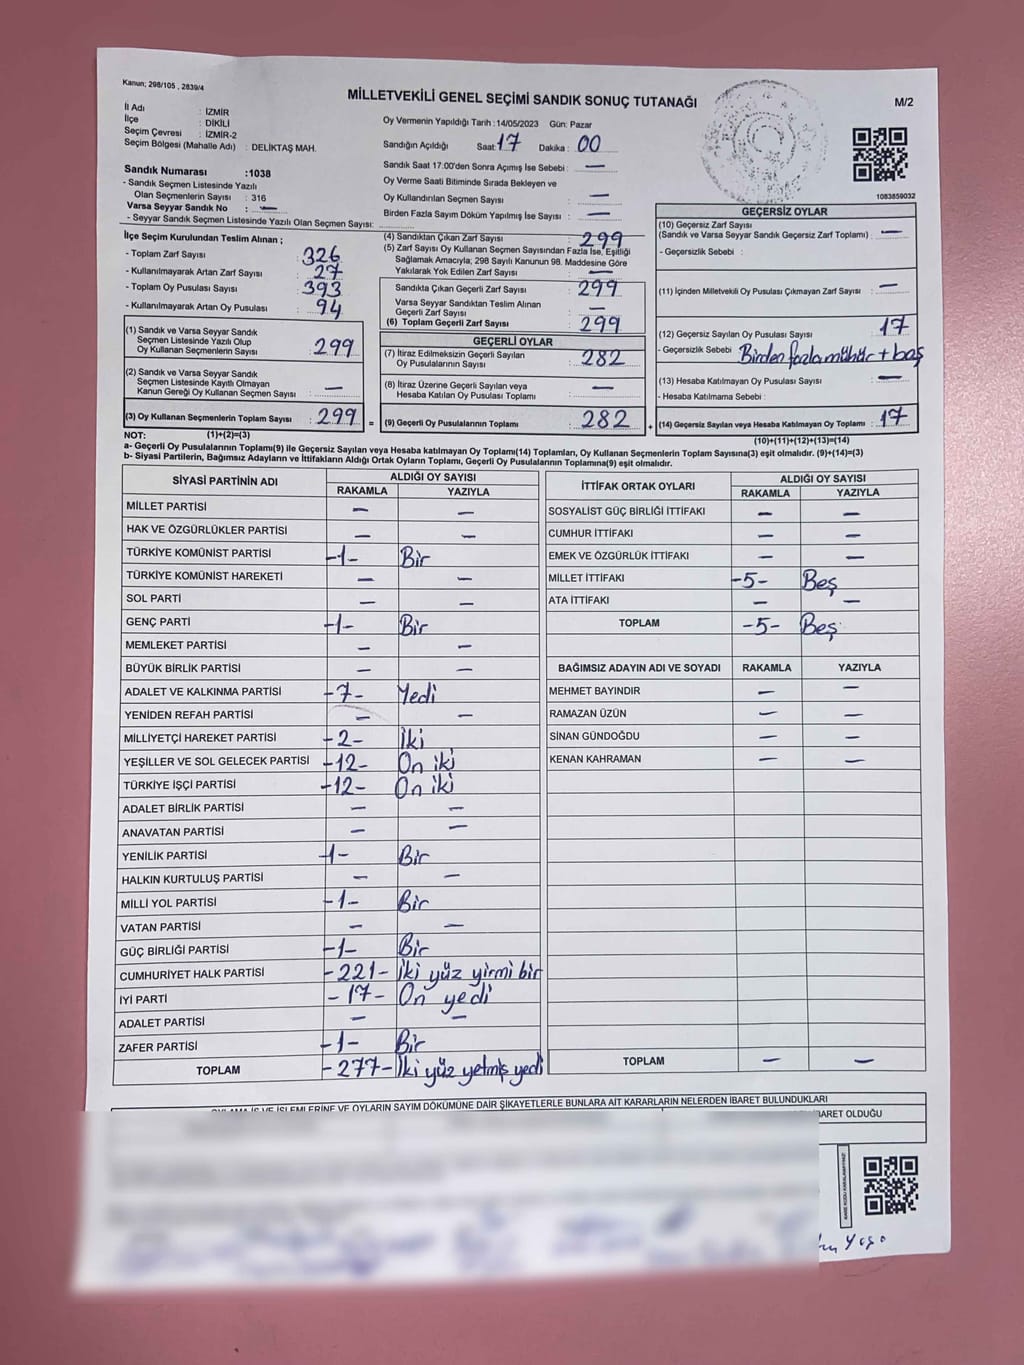 Kanun; 298/105 , 2839/4
MİLLETVEKİLİ GENEL SEÇİMİ SANDIK SONUÇ TUTANAĞI
M/2
İl Adı : İZMİR
İlçe : DİKİLİ
Seçim Çevresi : İZMİR-2
Seçim Bölgesi (Mahalle Adı) : DELİKTAŞ MAH.
Sandık Numarası :1038
- Sandık Seçmen Listesinde Yazılı
Olan Seçmenlerin Sayısı : 316
Varsa Seyyar Sandık No : —
- Seyyar Sandık Seçmen Listesinde Yazılı Olan Seçmen Sayısı:
Oy Vermenin Yapıldığı Tarih :14/05/2023 Gün: Pazar
Sandığın Açıldığı Saat: 17 Dakika : 00
Sandık Saat 17:00'den Sonra Açımış İse Sebebi : —
Oy Verme Saati Bitiminde Sırada Bekleyen ve
Oy Kullandırılan Seçmen Sayısı : —
Birden Fazla Sayım Döküm Yapılmış İse Sayısı : —
1083859032
İlçe Seçim Kurulundan Teslim Alınan ;
- Toplam Zarf Sayısı : 326
- Kullanılmayarak Artan Zarf Sayısı : 27
- Toplam Oy Pusulası Sayısı : 393
- Kullanılmayarak Artan Oy Pusulası : 94
(1) Sandık ve Varsa Seyyar Sandık
Seçmen Listesinde Yazılı Olup
Oy Kullanan Seçmenlerin Sayısı : 299
(2) Sandık ve Varsa Seyyar Sandık
Seçmen Listesinde Kayıtlı Olmayan
Kanun Gereği Oy Kullanan Seçmen Sayısı : —
(3) Oy Kullanan Seçmenlerin Toplam Sayısı : 299 =
(4) Sandıktan Çıkan Zarf Sayısı : 299
(5) Zarf Sayısı Oy Kullanan Seçmen Sayısından Fazla İse, Eşitliği
Sağlamak Amacıyla; 298 Sayılı Kanunun 98. Maddesine Göre
Yakılarak Yok Edilen Zarf Sayısı : —
Sandıkta Çıkan Geçerli Zarf Sayısı : 299
Varsa Seyyar Sandıktan Teslim Alınan
Geçerli Zarf Sayısı : —
(6) Toplam Geçerli Zarf Sayısı : 299
GEÇERLİ OYLAR
(7) İtiraz Edilmeksizin Geçerli Sayılan
Oy Pusulalarının Sayısı : 282
(8) İtiraz Üzerine Geçerli Sayılan veya
Hesaba Katılan Oy Pusulaları Toplamı : —
(9) Geçerli Oy Pusulalarının Toplamı : 282 +
GEÇERSİZ OYLAR
(10) Geçersiz Zarf Sayısı
(Sandık ve Varsa Seyyar Sandık Geçersiz Zarf Toplamı) : —
- Geçersizlik Sebebi :
(11) İçinden Milletvekili Oy Pusulası Çıkmayan Zarf Sayısı : —
(12) Geçersiz Sayılan Oy Pusulası Sayısı : 17
- Geçersizlik Sebebi : Birden fazla mühür + boş
(13) Hesaba Katılmayan Oy Pusulası Sayısı : —
- Hesaba Katılmama Sebebi :
(14) Geçersiz Sayılan veya Hesaba Katılmayan Oy Toplamı : 17
NOT: (1)+(2)=(3)
(10)+(11)+(12)+(13)=(14)
a- Geçerli Oy Pusulalarının Toplamı(9) ile Geçersiz Sayılan veya Hesaba katılmayan Oy Toplamı(14) Toplamları, Oy Kullanan Seçmenlerin Toplam Sayısına(3) eşit olmalıdır. (9)+(14)=(3)
b- Siyasi Partilerin, Bağımsız Adayların ve İttifakların Aldığı Ortak Oyların Toplamı, Geçerli Oy Pusulalarının Toplamına(9) eşit olmalıdır.
SİYASİ PARTİNİN ADI
ALDIĞI OY SAYISI
RAKAMLA YAZIYLA
MİLLET PARTİSİ — —
HAK VE ÖZGÜRLÜKLER PARTİSİ — —
TÜRKİYE KOMÜNİST PARTİSİ -1- Bir
TÜRKİYE KOMÜNİST HAREKETİ — —
SOL PARTİ — —
GENÇ PARTİ -1- Bir
MEMLEKET PARTİSİ — —
BÜYÜK BİRLİK PARTİSİ — —
ADALET VE KALKINMA PARTİSİ -7- Yedi
YENİDEN REFAH PARTİSİ — —
MİLLİYETÇİ HAREKET PARTİSİ -2- İki
YEŞİLLER VE SOL GELECEK PARTİSİ -12- On iki
TÜRKİYE İŞÇİ PARTİSİ -12- On iki
ADALET BİRLİK PARTİSİ — —
ANAVATAN PARTİSİ — —
YENİLİK PARTİSİ -1- Bir
HALKIN KURTULUŞ PARTİSİ — —
MİLLİ YOL PARTİSİ -1- Bir
VATAN PARTİSİ — —
GÜÇ BİRLİĞİ PARTİSİ -1- Bir
CUMHURİYET HALK PARTİSİ -221- İki yüz yirmi bir
İYİ PARTİ -17- On yedi
ADALET PARTİSİ — —
ZAFER PARTİSİ -1- Bir
TOPLAM -277- İki yüz yetmiş yedi
İTTİFAK ORTAK OYLARI
ALDIĞI OY SAYISI
RAKAMLA YAZIYLA
SOSYALİST GÜÇ BİRLİĞİ İTTİFAKI — —
CUMHUR İTTİFAKI — —
EMEK VE ÖZGÜRLÜK İTTİFAKI — —
MİLLET İTTİFAKI -5- Beş
ATA İTTİFAKI — —
TOPLAM -5- Beş
BAĞIMSIZ ADAYIN ADI VE SOYADI RAKAMLA YAZIYLA
MEHMET BAYINDIR — —
RAMAZAN ÜZÜN — —
SİNAN GÜNDOĞDU — —
KENAN KAHRAMAN — —
TOPLAM — —
OYLAMA İŞ VE İŞLEMLERİNE VE OYLARIN SAYIM DÖKÜMÜNE DAİR ŞİKAYETLERLE BUNLARA AİT KARARLARIN NELERDEN İBARET BULUNDUKLARI
İBARET OLDUĞU